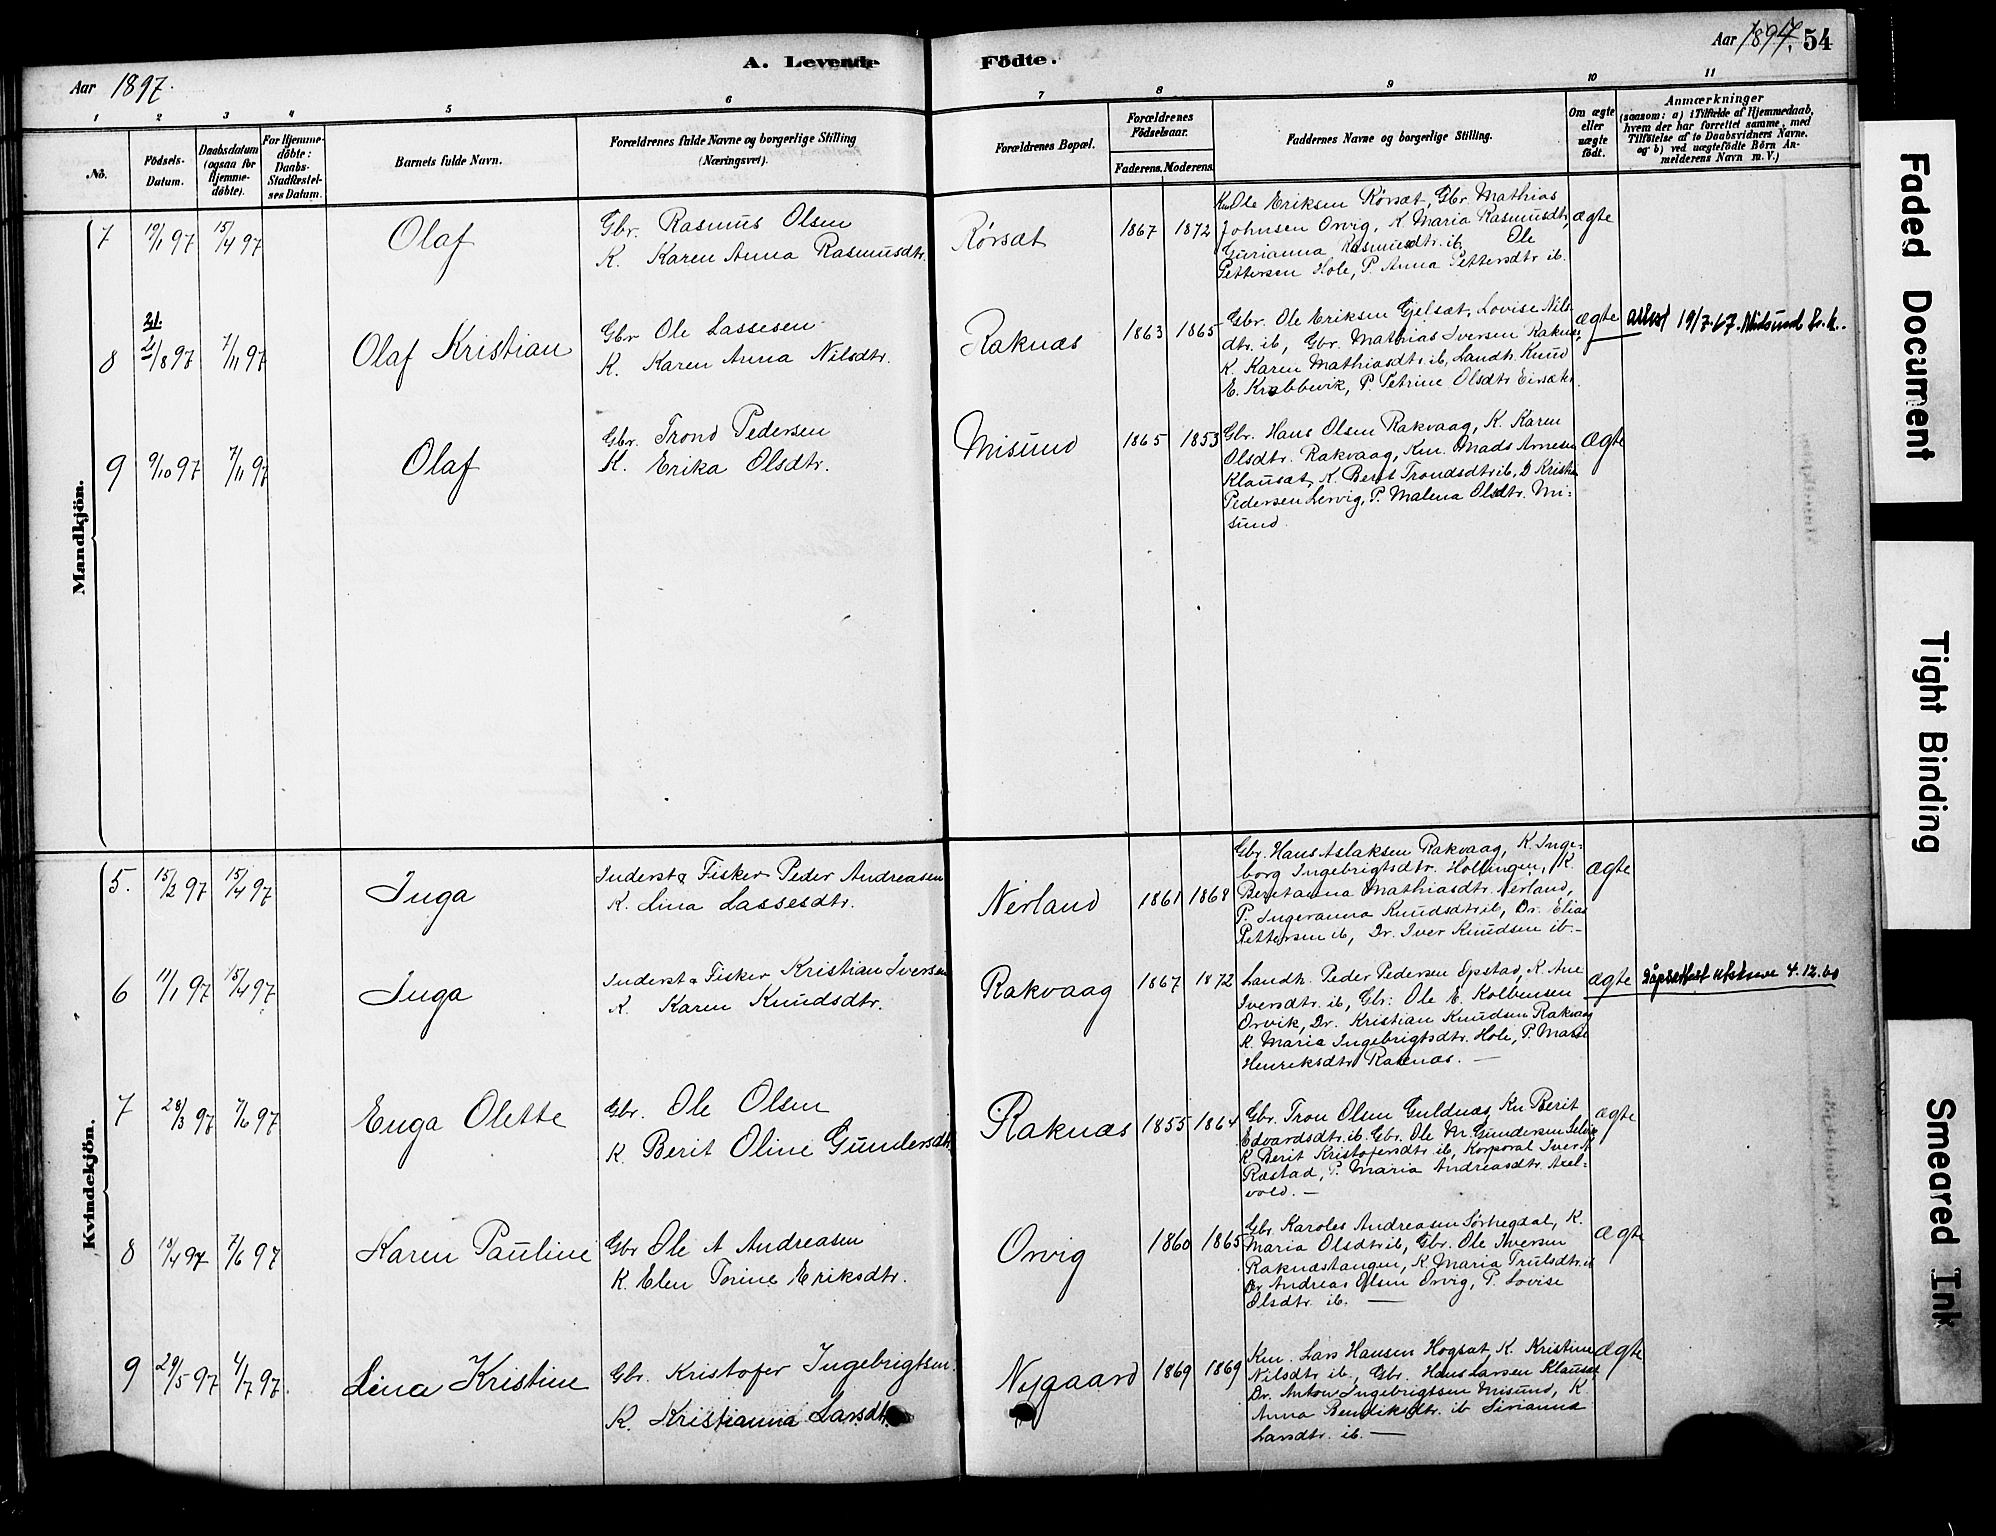 A. Levende Födte.
Aar 1897.
Aar 1897. 54
1 2 3 4 5 6 7 8 9 10 11
No.
Födsels-Datum.
Daabsdatum (ogsaa for Hjemme-döbte).
For Hjemme-döbte: Daabs-Stadfæstel-ses Datum.
Barnets fulde Navn.
Forældrenes fulde Navne og borgerlige Stilling
(Næringsvei).
Forældrenes Bopæl.
Forældrenes Födselsaar.
Faderens. Moderens.
Faddernes Navne og borgerlige Stilling.
Om ægte eller uægte födt.
Anmærkninger
(saasom: a) i Tilfælde af Hjemmedaab,
hvem der har forrettet samme, med
Tilföielse af to Daabsvidners Navne,
og b) ved uægtefödte Börn An-
melderens Navn m. V.)
Mandkjön.
7 19/1 97 15/4 97 Olaf
Gbr. Rasmus Olsen
K. Karen Anna Rasmusdtr.
Rörsæt 1867 1872
Ole Eriksen Rörsæt, Gbr. Mathias
Johnsen Orvig, K. Maria Rasmusdtr,
Gurianna Rasmusdtr. ib. Ole
Pettersen Hole, P. Anna Pettersdtr ib.
ægte
8 21. 21/8 97 7/11 97 Olaf Kristian
Gbr. Ole Lassesen
K. Karen Anna Nilsdtr.
Raknæs 1863 1865
Gbr. Ole Eriksen Gjelsæt, Lovise Nils
dtr. ib, Gbr. Mathias Iversen Raknæs,
K. Karen Mathiasdtr. ib, Landh. Knud
E. Krabbevik, P. Petrine Olsdtr.
ægte
attest 19/7-67. Midsund
9 9/10 97 7/11 97 Olaf
Gbr. Trond Pedersen
K. Erika Olsdtr.
Misund 1865 1853
Gbr. Hans Olsen Rakvaag, K. Karen
Olsdtr. Rakvaag, Km. Mads Arnesen
Klausæt, K. Berit Trondsdtr ib, D. Kristian
Pedersen Lervig, P. Malena Olsdtr. Mi-
sund.
ægte
Kvindekjön.
5. 15/2 97 15/4 97 Inga
Inderst & Fisker Peder Andreasen
K. Lina Lassesdtr.
Nerland 1861 1868
Gbr. Hans Aslaksen Rakvaag, K. Inge-
borg Ingebrigtsdtr. Hollingen, K.
Beretanna Mathiasdtr. Nerland,
P. Ingeranna Knudsdtr ib, Dr. Elias
Pettersen ib, Dr. Iver Knudsen ib. -
ægte
6 11/1 97 15/4 97 Inga
Inderst & Fisker Kristian Iversen
K. Karen Knudsdtr.
Rakvaag 1867 1872
Landh. Peder Pedersen Opstad, K. Ane
Iversdtr. ib, Gbr. Ole E. Kolbensen
Orvik, Dr. Kristian Knudsen Rakvaag
K. Maria Ingebrigtsdtr. Hole, P.
Henriksdtr. Raknæs. -
ægte
Dåpsattest utskreve 4.12.60
7 28/3 97 7/6 97 Enga Olette
Gbr. Ole Olsen
K. Berit Oline Gundersdtr
Raknæs 1855 1864
Gbr. Tron Olsen Guldnæs, Kn Berit
Edvardsdtr. ib. Gbr. Ole M. Gundersen
K Berit Kristofersdtr ib, Korporal Iver
Ræstad, P. Maria Andreasdtr. Axel-
vold. -
ægte
8 18/4 97 7/6 97 Karen Pauline
Gbr Ole A Andreasen
K. Elen Torine Eriksdtr.
Orvig 1860 1865
Gbr Karoles Andreasen Sörhegdal, K.
Maria Olsdtr ib, Gbr. Ole Iversen
Raknæstangen, K. Maria Trulsdtr. ib
Dr Andreas Olsen Orvig, P. Lovise
Olsdtr. ib. -
ægte
9 29/5 97 4/7 97. Lina Kristine
Gbr. Kristofer Ingebrigtsen.
K. Kristianna Larsdtr
Nygaard 1869 1869
Km. Lars Hansen Hogsæt, K. Kristine
Nilsdtr. ib, Gbr. Hans Larsen Klausæt
Dr. Anton Ingebrigtsen Misund, K
Anna Bendiksdtr. ib Sirianna
Larsdtr. ib. -
ægte
Faded Document
Tight Binding
Smeared Ink